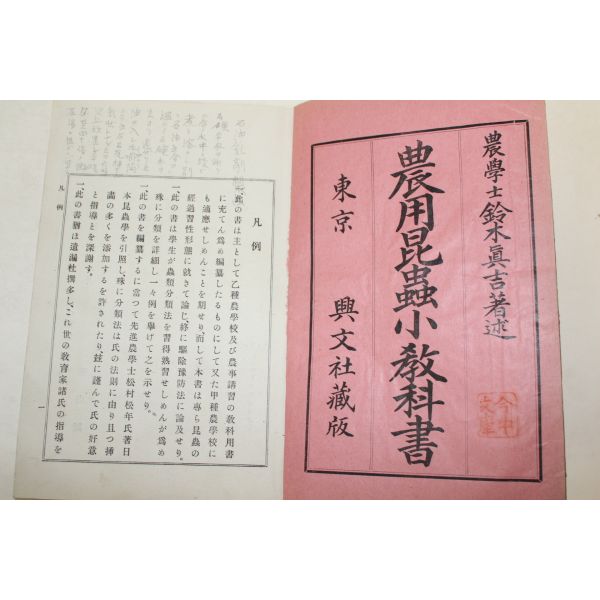 農學士鈴木眞吉著述
農用昆蟲小教科書
東京　興文社藏版
凡例
一、此の書は主として乙種農學校及び農事講習の教科用書
に充てん爲め編纂したるものにして又た甲種農學校に
も適應せしめんことを期せり、而して本書は專ら昆蟲の
經過習性形態に就きて論じ、終に驅除豫防法に論及せり。
一、此の書は學生が蟲類分類法を習得熟習せしめんが爲め
殊に分類を詳細し一々例を擧げて之を示せり。
一、此の書を編纂するに當つて先進農學士松村松年氏著日
本昆蟲學を引照し、殊に分類法は氏の法則に由り且つ挿
畵の多くを添加するを許されたり、玆に謹んで氏の好意
と指導とを深謝す。
一、此の書猶ほ遺漏杜撰多し、これ世の敎育家諸氏の指導を
凡例
一